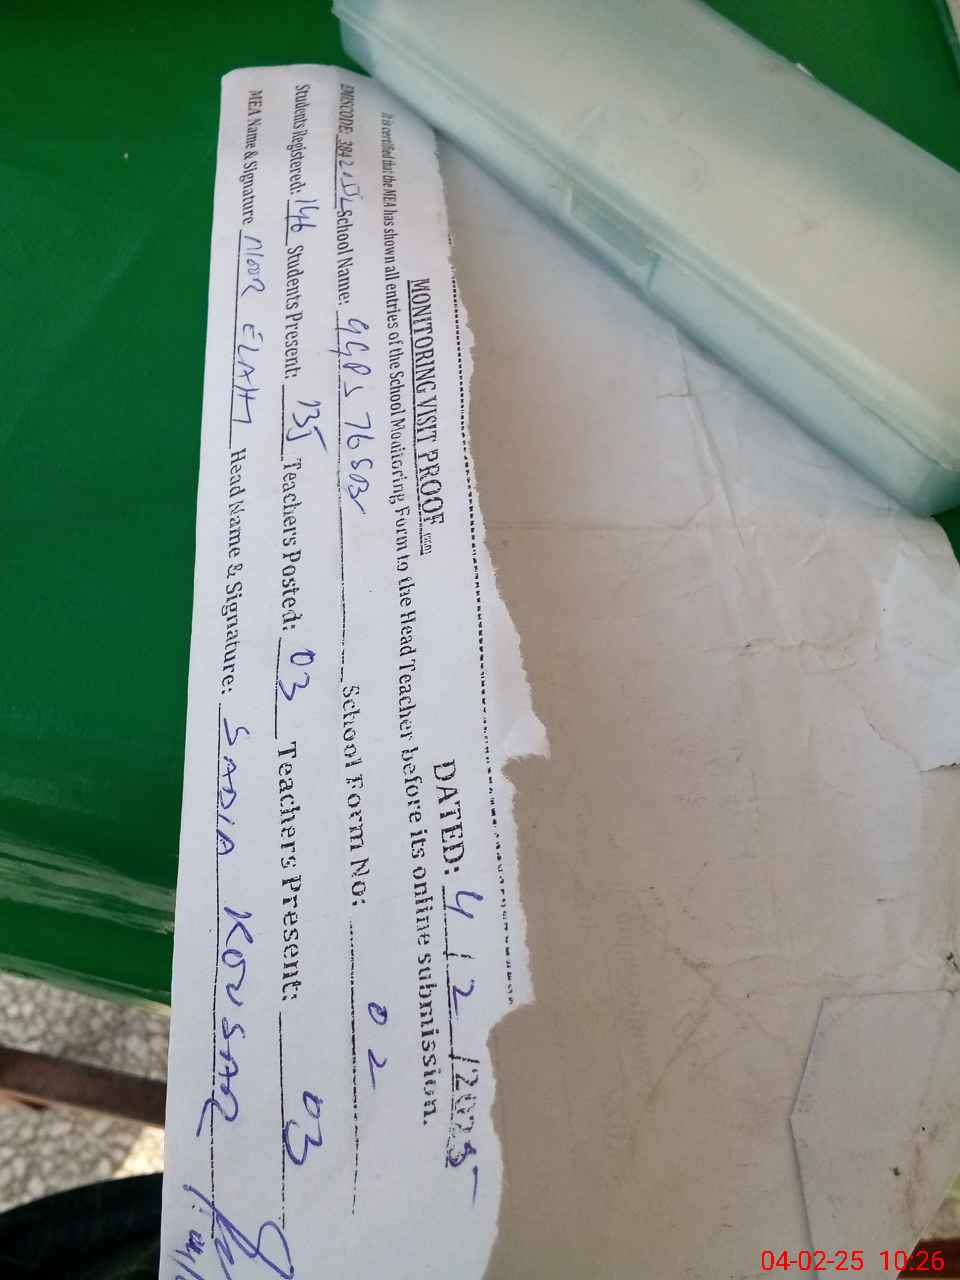 MONITORING VISIT PROOF DATED: 4/2/2025
It is certified that the MEA has shown all entries of the School Monitoring Form to the Head Teacher before its online submission.
EMISCODE: School Name: GGPS 76 SB School Form No: 02
Students Registered: 146 Students Present: 135 Teachers Posted: 03 Teachers Present: 03
MEA Name & Signature NOOR ELAHI Head Name & Signature: SADIA KOUSAR
04-02-25 10:26